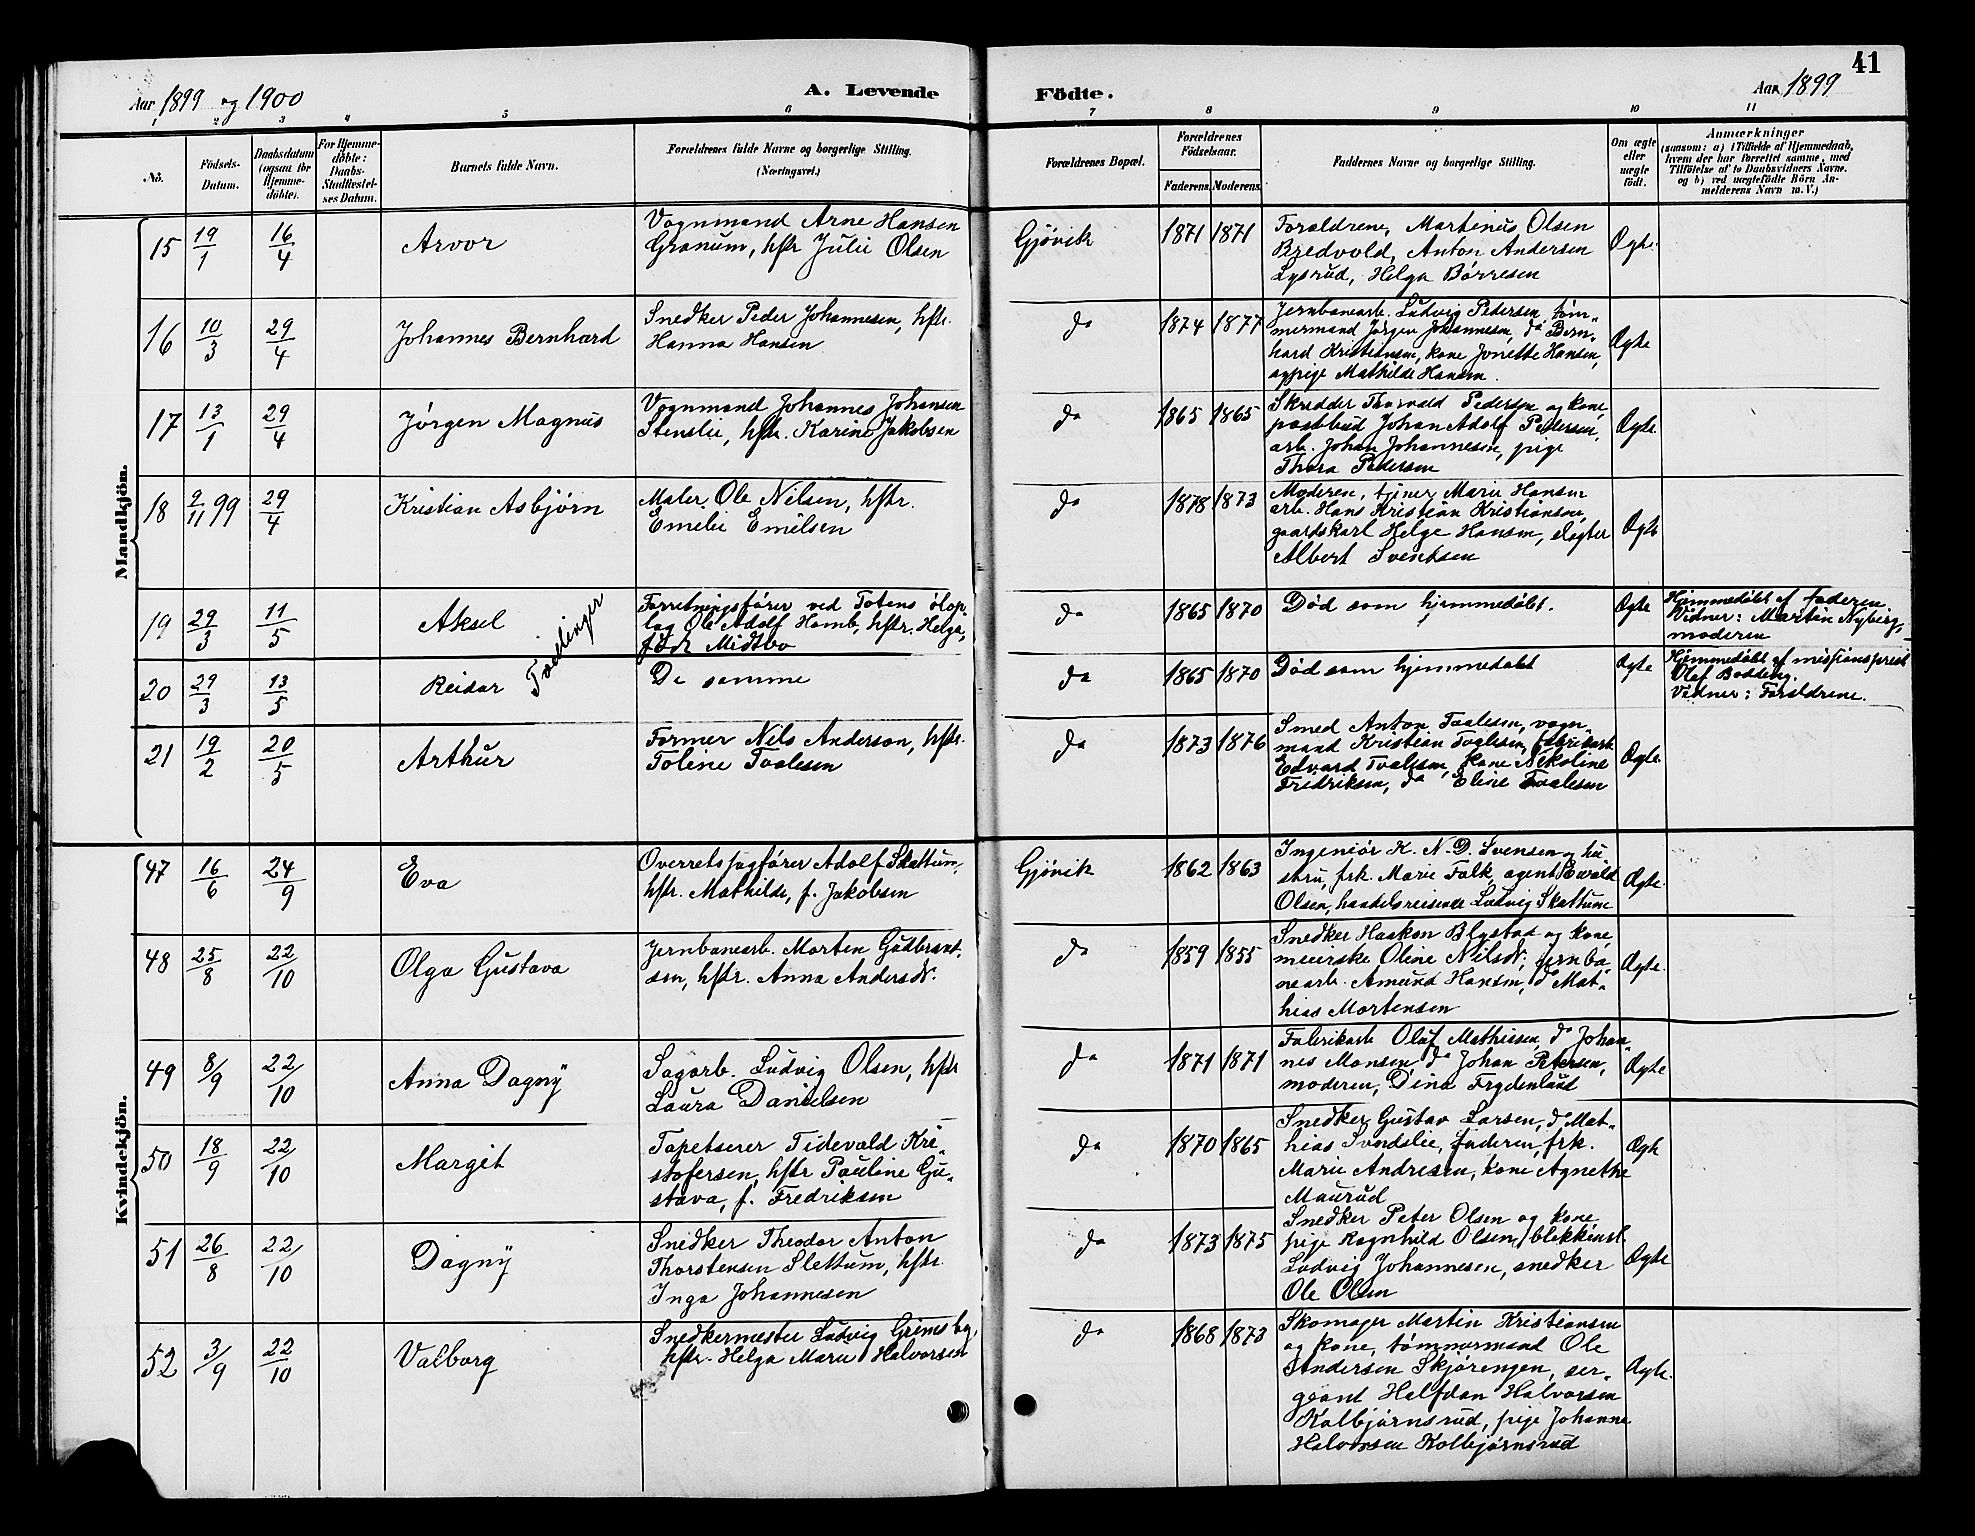 41
Aar 1899 og 1900
A. Levende
Födte.
Aar 1899
1 2 3 4 5 6 7 8 9 10 11
No.
Födsels-
Datum.
Daabsdatum
(ogsaa for
Hjemme-
döbte).
For Hjemme-
döbte:
Daabs-
Stadfæstel-
ses Datum.
Barnets fulde Navn.
Forældrenes fulde Navne og borgerlige Stilling.
(Næringsvei.)
Forældrenes Bopæl.
Forældrenes
Födselsaar.
Faderens. Moderens.
Faddernes Navne og borgerlige Stilling.
Om ægte
eller
uægte
födt.
Anmærkninger
(saasom: a) i Tilfælde af Hjemmedaab,
hvem der har forrettet samme, med
Tilföielse af to Daabsvidners Navne.
og b) ved uægtefödte Börn An-
melderens Navn m. V.)
Mandkjön.
15 19/1 16/4 Arvor
Vognmand Arne Hansen
Granum, hstr Julie Olsen
Gjøvik 1871 1871
Forældrene, Martinus Olsen
Bredvold, Anton Andersen
Lysrud, Helga Børresen
Ægte.
16 10/3 29/4 Johannes Bernhard
Snedker Peder Johannesen, hstr.
Hanna Hansen
do 1874 1877
Jernbanearb. Ludvig Pedersen, tøm-
mermand Jørgen Johannesen, do Bern-
hard Kristiansen, kone Jonette Hansen,
pige Mathilde Hansen.
Ægte
17 13/1 29/4 Jørgen Magnus
Vognmand Johannes Johansen
Stenslie, hstr. Karine Jakobsen
do 1865 1865
Skrædder Thorvald Pedersen og kone,
postbud Johan Adolf Pedersen,
arb. Johan Johannesen, pige
Thora Pedersen
Ægte.
18 2/11 99 29/4 Kristian Asbjørn
Maler Ole Nilsen, hstr.
Emelie Emilsen
do 1878 1873
Moderen, tjener Marie Hansen
arb. Hans Kristian Kristiansen,
gaardskarl Helge Hansen, slagter
Albert Svendsen
Ægte
19 29/3 11/5 Aksel
Tvillinger
Forretningsfører ved Totens ølop-
lag Ole Adolf Homb, hstr. Helga,
født Midtbo
do 1865 1870
Død som hjemmedøbt.
Ægte
Hjemmedøbt af faderen
Vidner: Martin Nyberg,
moderen
20 29/3 13/5 Reidar
De samme
do 1865 1870
Død som hjemmedøbt
Ægte
Hjemmedøbt af missionsprest
Olaf Bodding.
Vidner: Forældrene.
21 19/2 20/5 Arthur
Former Nils Anderson, hstr.
Toline Taalesen
do 1873 1876
Smed Anton Taalesen, vogn-
mand Kristian Taalesen, fabrikarb.
Edvard Taalesen, kone Nikoline
Fredriksen, do Eline Taalesen
Ægte.
Kvindekjön.
47 16/6 24/9 Eva
Overretssagfører Adolf Skattum,
hstr. Mathilde, f. Jakobsen
Gjøvik 1862 1863
Ingeniør K. N. D. Svensen og hu-
stru, frk. Marie Falk, agent Evald
Olsen, handelsreisende Ludvig Skattum
Ægte.
48 25/8 22/10 Olga Gustava
Jernbanearb. Morten Gudbrand-
sen, hstr. Anna Andersdr.
do 1859 1855
Snedker Haakon Blystad og kone
meierske Oline Nilsdr, jernba-
nearb. Amund Hansen, do Mat-
hias Mortensen
Ægte.
49 8/9 22/10 Anna Dagny
Sagarb. Ludvig Olsen, hstr
Laura Danielsen
do 1871 1871
Fabrikarb Oluf Mathisen, do Johan-
nes Monsen, do Johan Petersen,
moderen, Dina Frydenlund
Ægte
50 18/9 22/10 Margit
Tapetserer Tidevald Kri-
stofersen, hstr Pauline Gu-
stava, f. Fredriksen
do 1870 1865
Snedker Gustav Larsen, do Mat-
hias Svendslie, faderen, frk.
Marie Andresen, kone Agnethe
Maurud
Ægte
51 26/8 22/10 Dagny
Snedker Theodor Anton
Thorstensen Slettum, hstr
Inga Johannesen
do 1873 1875
Snedker Peter Olsen og kone
pige Ragnhild Olsen, blikkensl.
Ludvig Johannesen, snedker
Ole Olsen
Ægte
52 3/9 22/10 Valborg
Snedkermester Ludvig Grimsby,
hstr. Helga Marie Halvorsen
do 1868 1873
Skomager Martin Kristiansen
og kone, tømmermand Ole
Andersen Skjørengen, ser-
geant Halfdan Halvorsen
Kolbjørnsrud, pige Johanne
Halvorsen Kolbjørnsrud
Ægte.